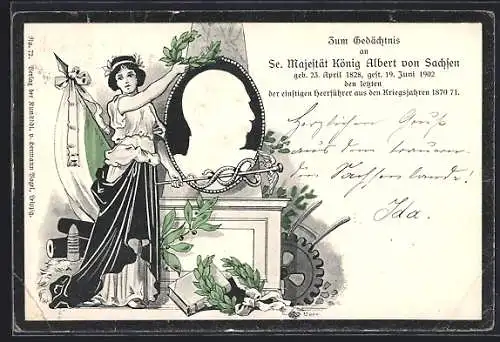 Zum Gedächtnis
an
Se. Majestät König Albert von Sachsen
geb. 23. April 1828, gest. 19. Juni 1902
den letzten
der einstigen Heerführer aus den Kriegsjahren 1870 71.
Herzlichen Gruß
aus dem trauern-
den Sachsenlande!
Ida.
No. 72. Verlag der Kunstanst. v. Hermann Vogel, Leipzig.